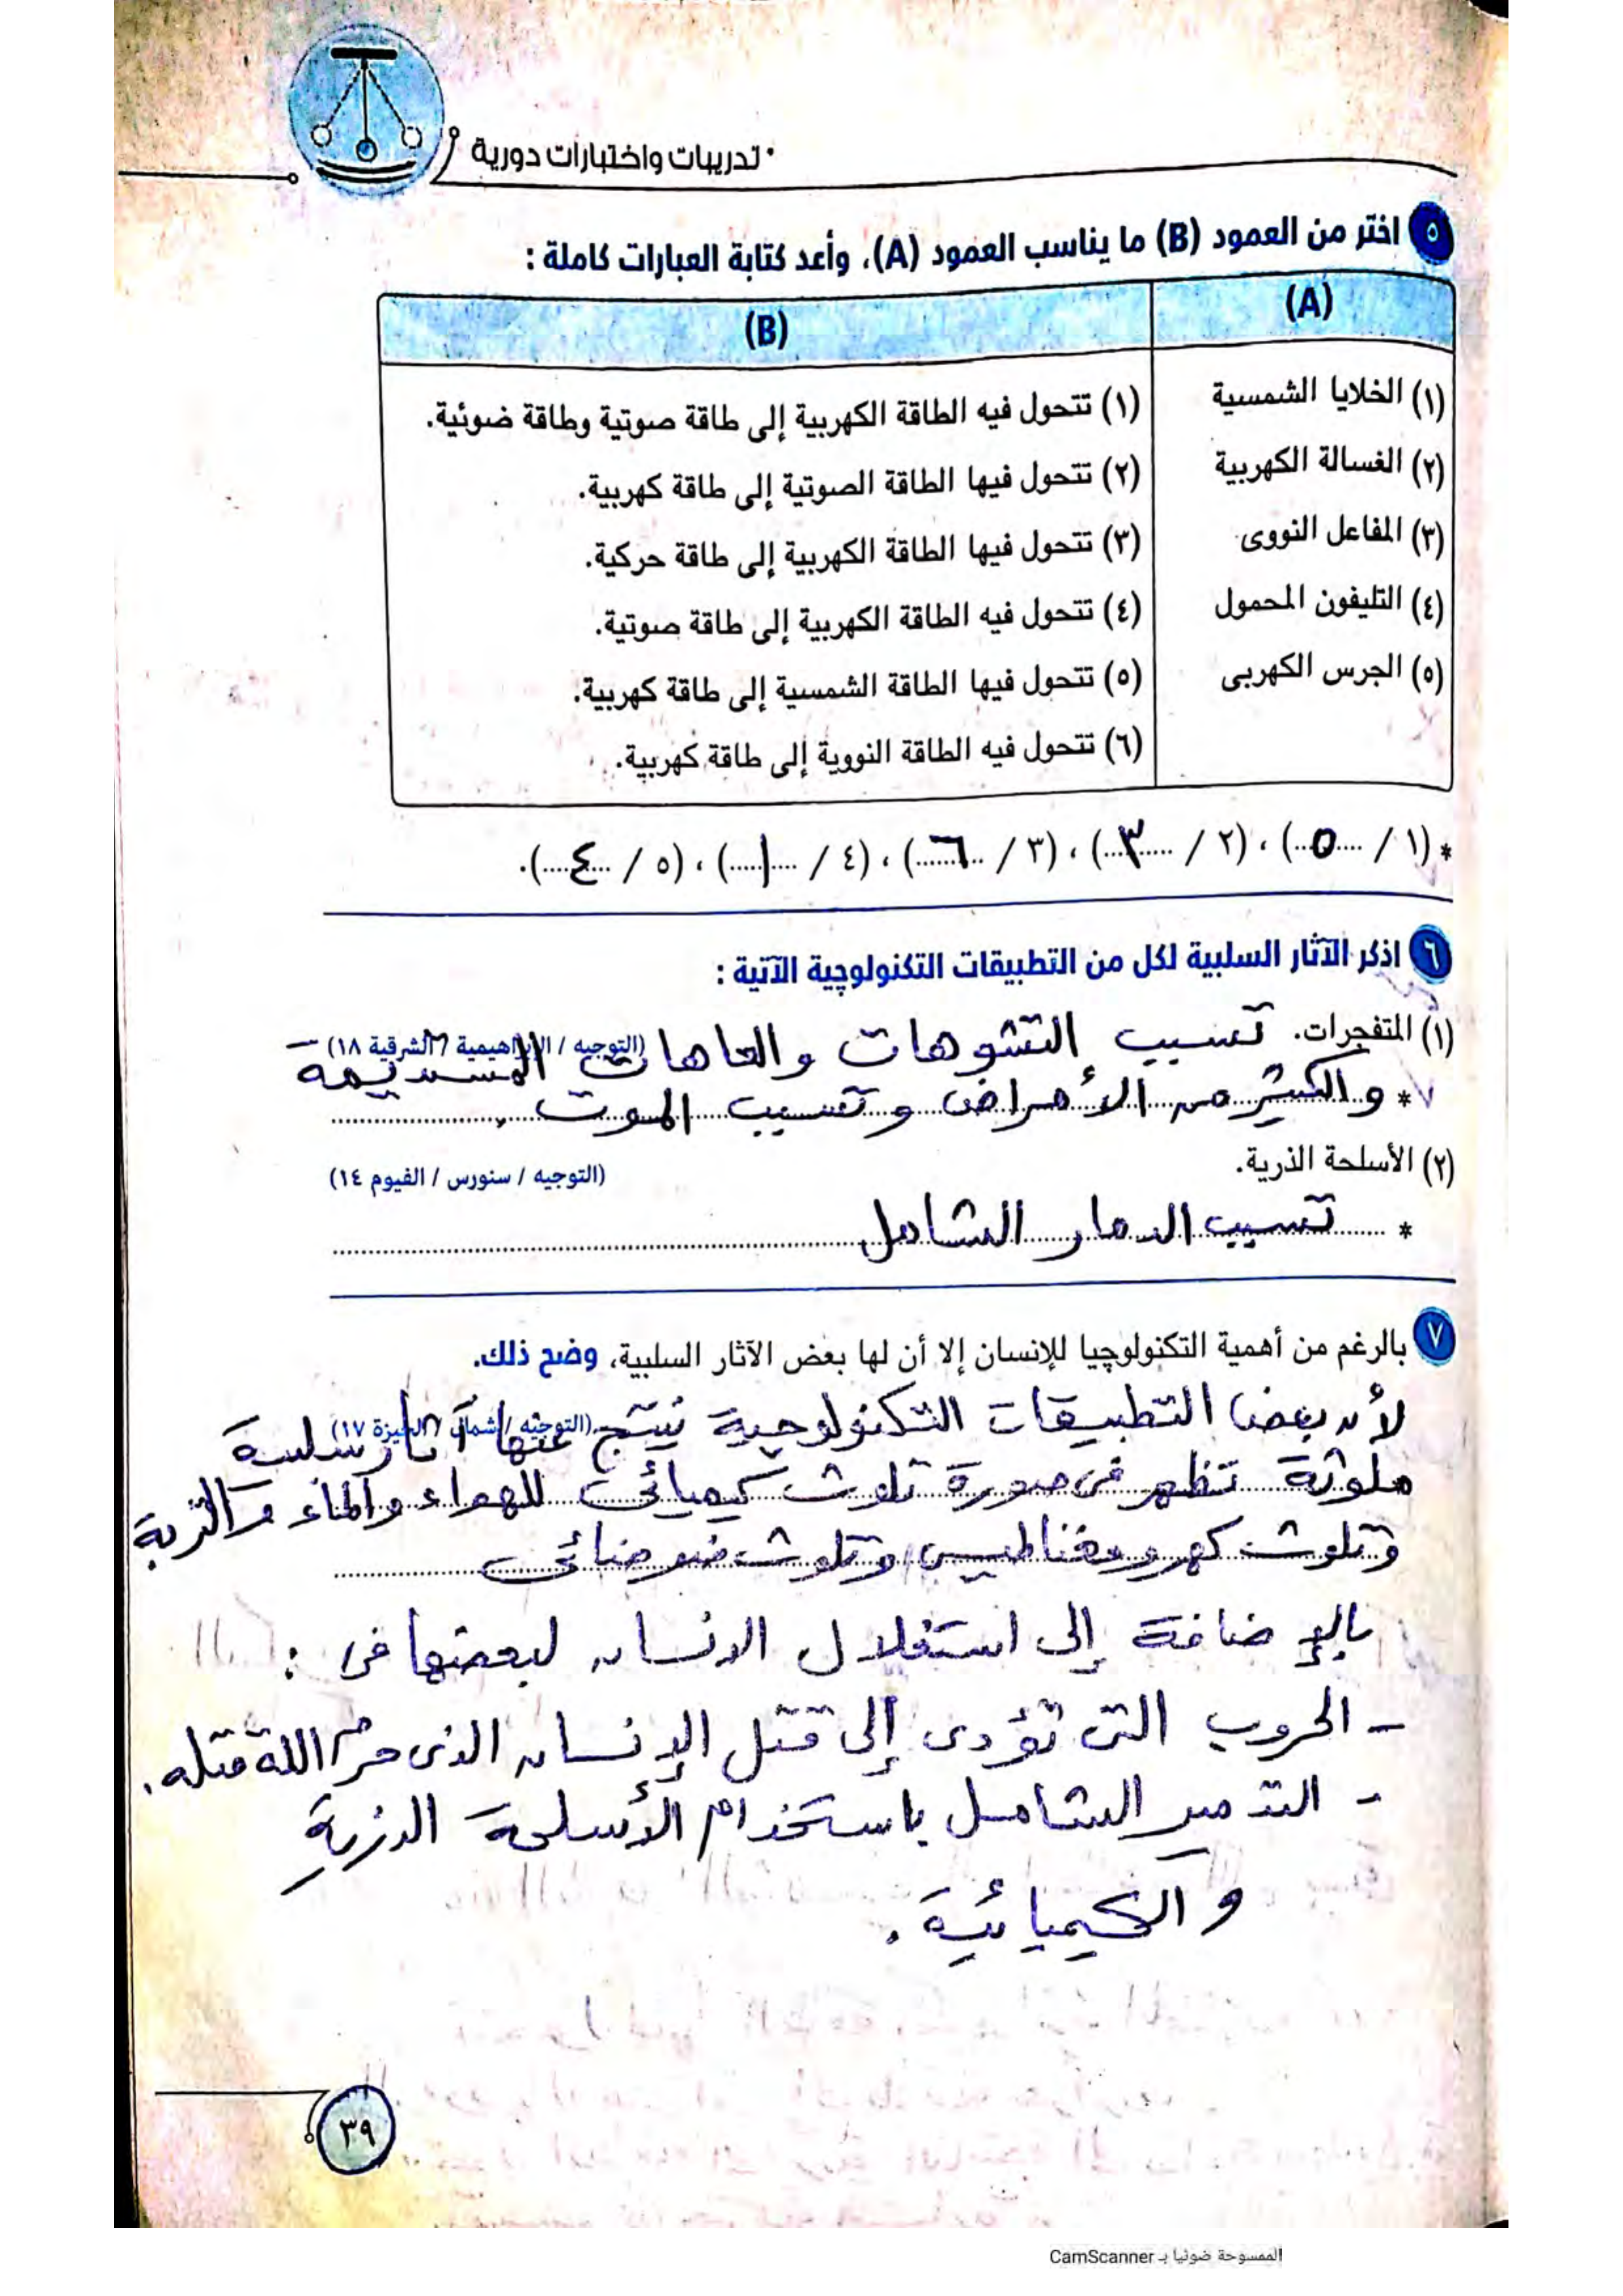 تدريبات واختبارات دورية
٥ اختر من العمود (B) ما يناسب العمود (A)، وأعد كتابة العبارات كاملة :
(A)
(B)
(١) الخلايا الشمسية
(١) تتحول فيه الطاقة الكهربية إلى طاقة صوتية وطاقة ضوئية.
(٢) الغسالة الكهربية
(٢) تتحول فيها الطاقة الصوتية إلى طاقة كهربية.
(٣) المفاعل النووى
(٣) تتحول فيها الطاقة الكهربية إلى طاقة حركية.
(٤) التليفون المحمول
(٤) تتحول فيه الطاقة الكهربية إلى طاقة صوتية.
(٥) الجرس الكهربى
(٥) تتحول فيها الطاقة الشمسية إلى طاقة كهربية.
(٦) تتحول فيه الطاقة النووية إلى طاقة كهربية.
* (١ / ٥)، (٢ / ٣)، (٣ / ٦)، (٤ / ١)، (٥ / ٤).
٦ اذكر الآثار السلبية لكل من التطبيقات التكنولوچية الآتية :
(١) المتفجرات. تسبب التشوهات والعاهات المستديمة
(التوجيه / الإبراهيمية / الشرقية ١٨)
* والكثير من الأمراض وتسبب الموت.
(٢) الأسلحة الذرية.
(التوجيه / سنورس / الفيوم ١٤)
* تسبب الدمار الشامل
٧ بالرغم من أهمية التكنولوچيا للإنسان إلا أن لها بعض الآثار السلبية، وضح ذلك.
(التوجيه / شمال / الجيزة ١٧)
لأن بعض التطبيقات التكنولوجية ينتج عنها آثار سلبية
ملوثة تظهر فى صورة تلوث كيميائى للهواء والماء والتربة
وتلوث كهرومغناطيسى وتلوث ضوضائى
بالإضافة إلى استغلال الانسان لبعضها فى :
- الحروب التى تؤدى إلى قتل الإنسان الذى حرم الله قتله.
- التدمير الشامل باستخدام الأسلحة الذرية
والكيميائية.
٣٩
الممسوحة ضوئيا بـ CamScanner